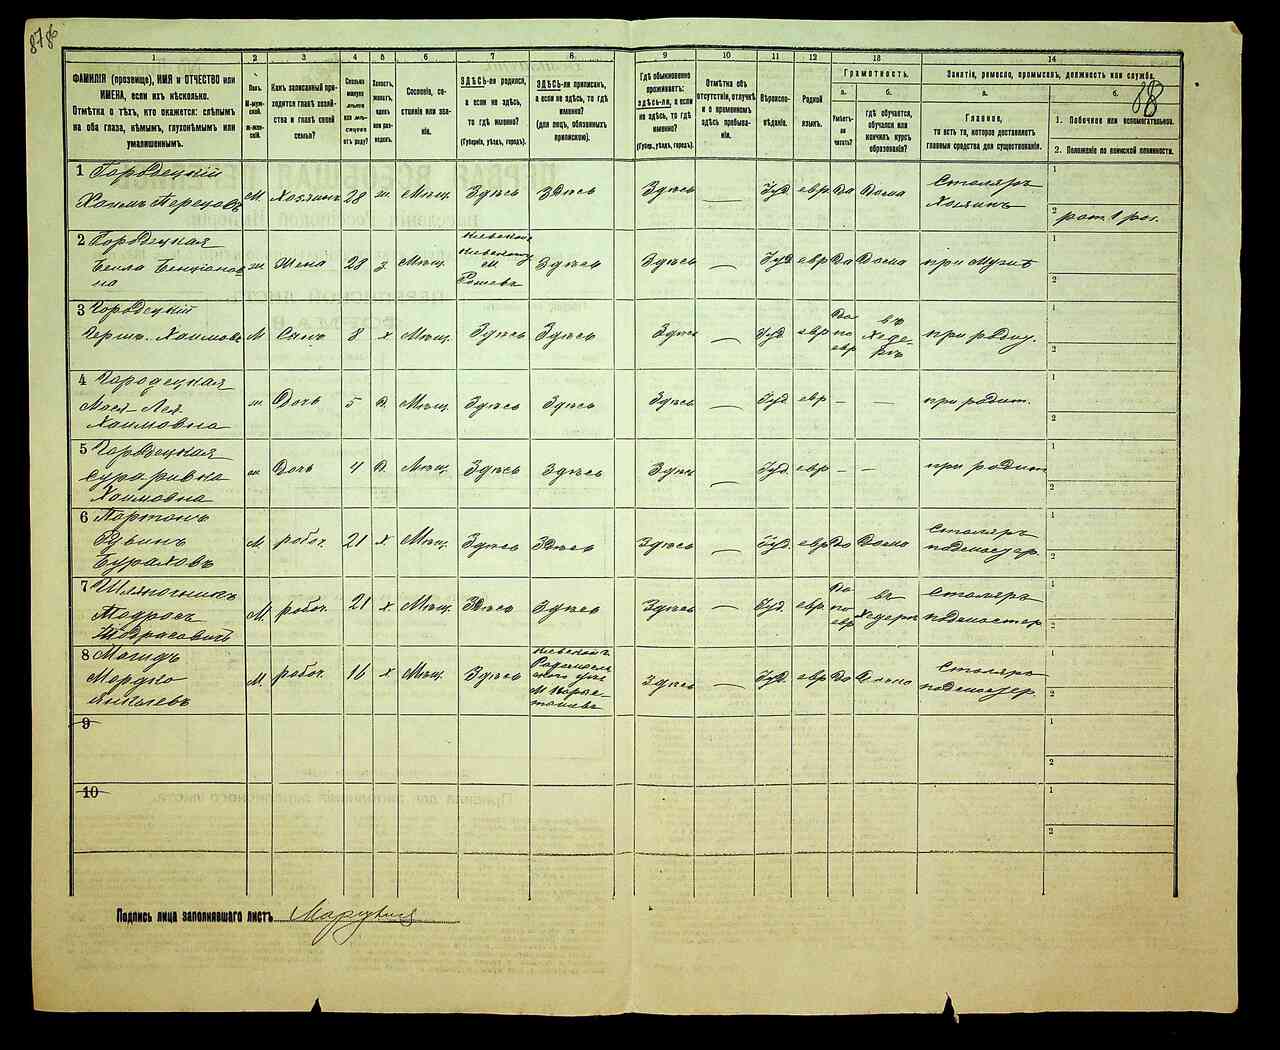 878
88
1
2
3
4
5
6
7
8
9
10
11
12
13
14
ФАМИЛІЯ (прозвище), ИМЯ и ОТЧЕСТВО или
ИМЕНА, если ихъ нѣсколько.
Отмѣтка о тѣхъ, кто окажется: слѣпымъ
на оба глаза, нѣмымъ, глухонѣмымъ или
умалишеннымъ.
Полъ.
М-муж-
ской.
ж-жен-
скій.
Какъ записанный при-
ходится главѣ хозяй-
ства и главѣ своей
семьи?
Сколько
минуло
лѣтъ
или мѣ-
сяцевъ
отъ роду?
Холостъ,
женатъ,
вдовъ
или раз-
веденъ.
Сословіе, со-
стояніе или зва-
ніе.
ЗДѢСЬ-ли родился,
а если не здѣсь,
то гдѣ именно?
(Губернія, уѣздъ, городъ).
ЗДѢСЬ-ли приписанъ,
а если не здѣсь, то гдѣ
именно?
(для лицъ, обязанныхъ
припискою).
Гдѣ обыкновенно
проживаетъ:
здѣсь-ли, а если
не здѣсь, то гдѣ
именно?
(Губерн., уѣздъ, городъ).
Отмѣтка объ
отсутствіи, отлучкѣ
и о временномъ
здѣсь пребыва-
ніи.
Вѣроиспо-
вѣданіе.
Родной
языкъ.
Грамотность.
а.
Умѣетъ-
ли
читать?
б.
гдѣ обучается,
обучался или
кончилъ курсъ
образованія?
Занятіе, ремесло, промыселъ, должность или служба.
а.
Главное,
то есть то, которое доставляетъ
главныя средства для существованія.
б.
1. Побочное или вспомогательное.
2. Положеніе по воинской повинности.
1 Городецкій
Хаимъ Перецовъ М. Хозяинъ 28 ж. Мѣщ. Здѣсь Здѣсь Здѣсь Іуд евр Да Дома Столяръ
Хозяинъ
1
2 рат. 1 раз.
2 Городецкая
Бейла Бенціонов
на ж. Жена 28 з. Мѣщ. Здѣсь Здѣсь — Іуд евр Да Дома при мужѣ
1
2
3 Городецкій
Герш. Хаимовъ М Сынъ 8 х Мѣщ. Здѣсь Здѣсь Здѣсь — Іуд. евр Да
по
евр въ
Хеде-
рѣ при родит.
1
2
4 Городецкая
Мася-Лея
Хаимовна ж. Дочь 5 д. Мѣщ. Здѣсь Здѣсь Здѣсь — Іуд. евр — — при родит.
1
2
5 Городецкая
Сура Ривка
Хаимовна ж. Дочь 4 д. Мѣщ. Здѣсь Здѣсь Здѣсь — Іуд. евр — — при родит
1
2
6 М. робоч. 21 х Мѣщ. Здѣсь Здѣсь Здѣсь — Іуд. евр Да Дома Столяръ
подмастер.
1
2
7 М. робоч. 21 х Мѣщ. Здѣсь Здѣсь Здѣсь — Іуд. евр. Да
по
евр въ
Хедерѣ Столяръ
подмастер
1
2
8 Магидъ
Мордко М. робоч. 16 х Мѣщ. Здѣсь Здѣсь — Іуд. евр Да Столяръ
подмастер.
1
2
9
1
2
10
1
2
Подпись лица заполнявшаго листъ